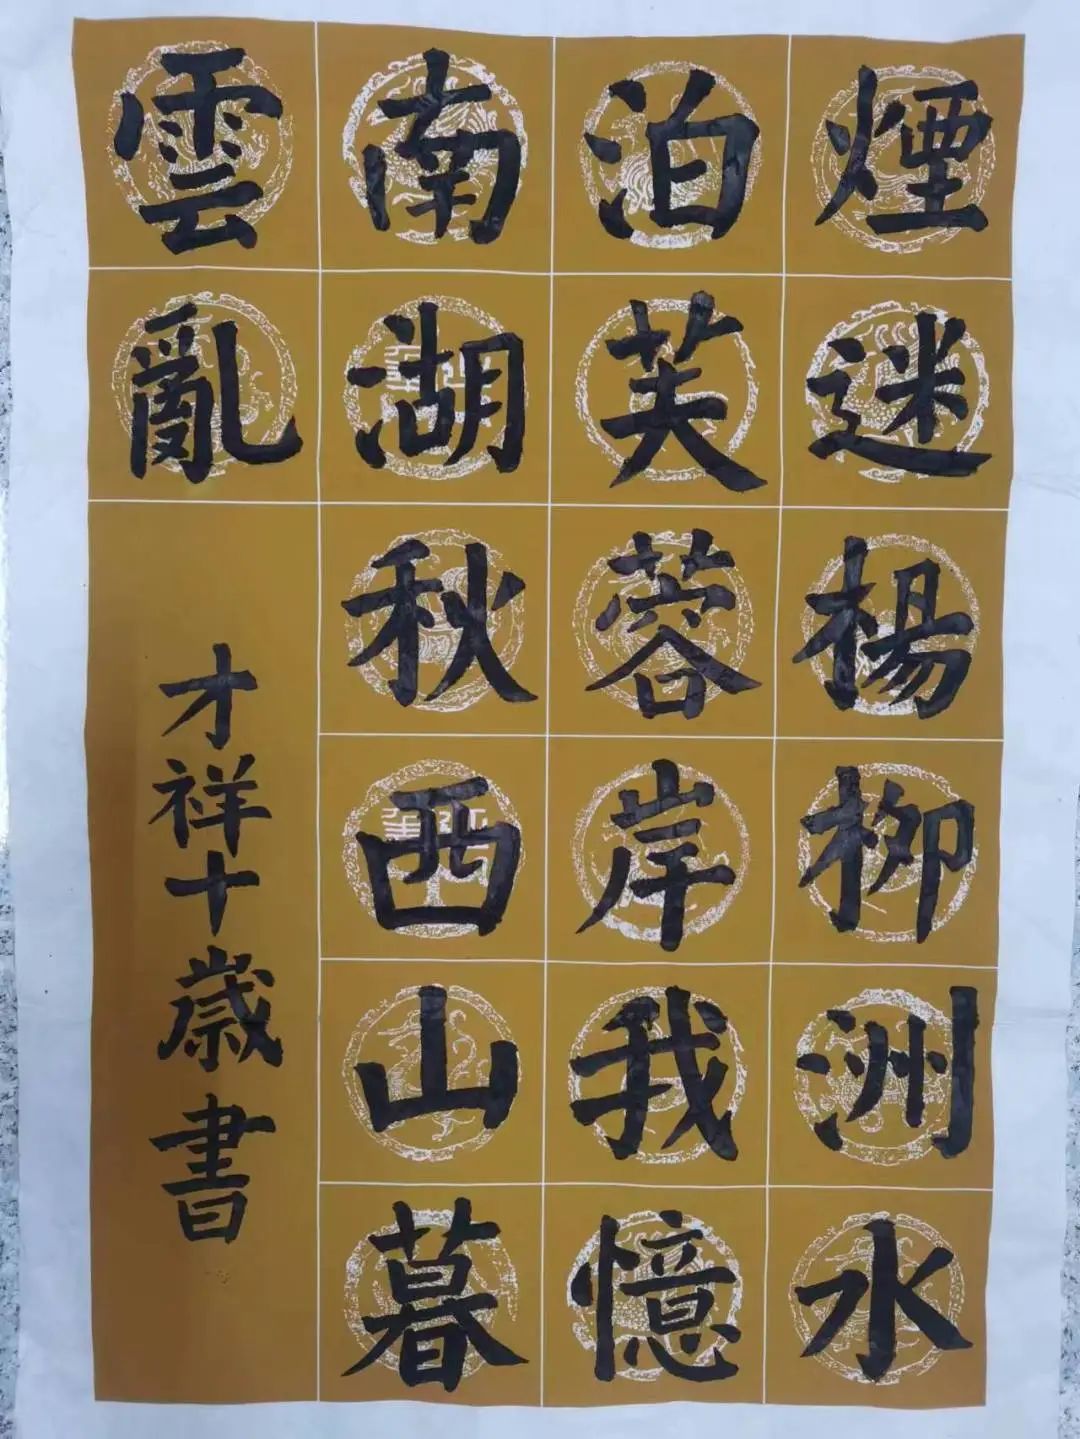 煙迷楊柳洲水
泊芙蓉岸我憶
南湖秋西山暮
雲亂
才祥十歲書